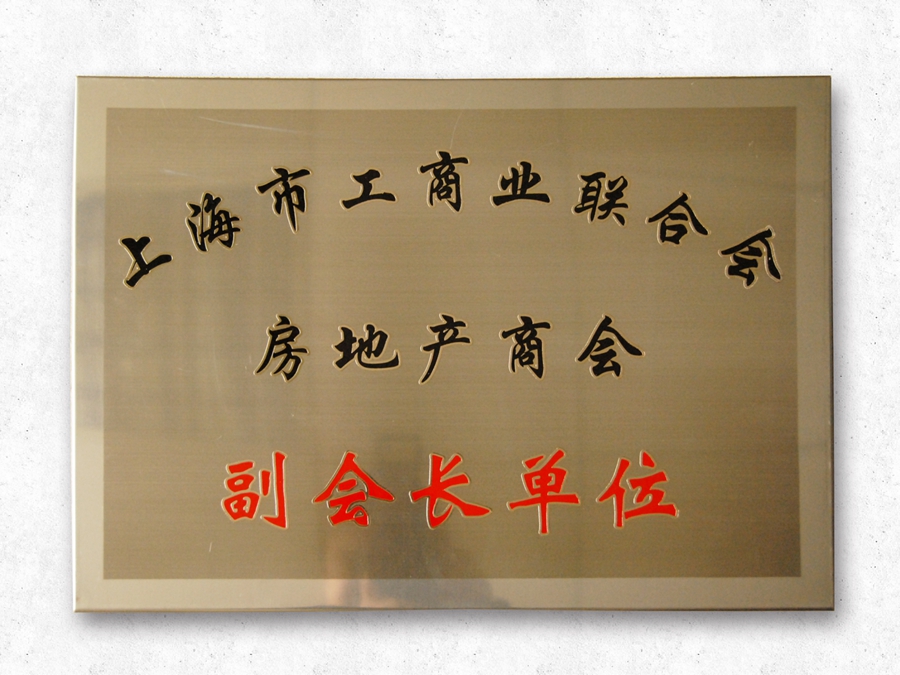 上海市工商业联合会
房地产商会
副会长单位